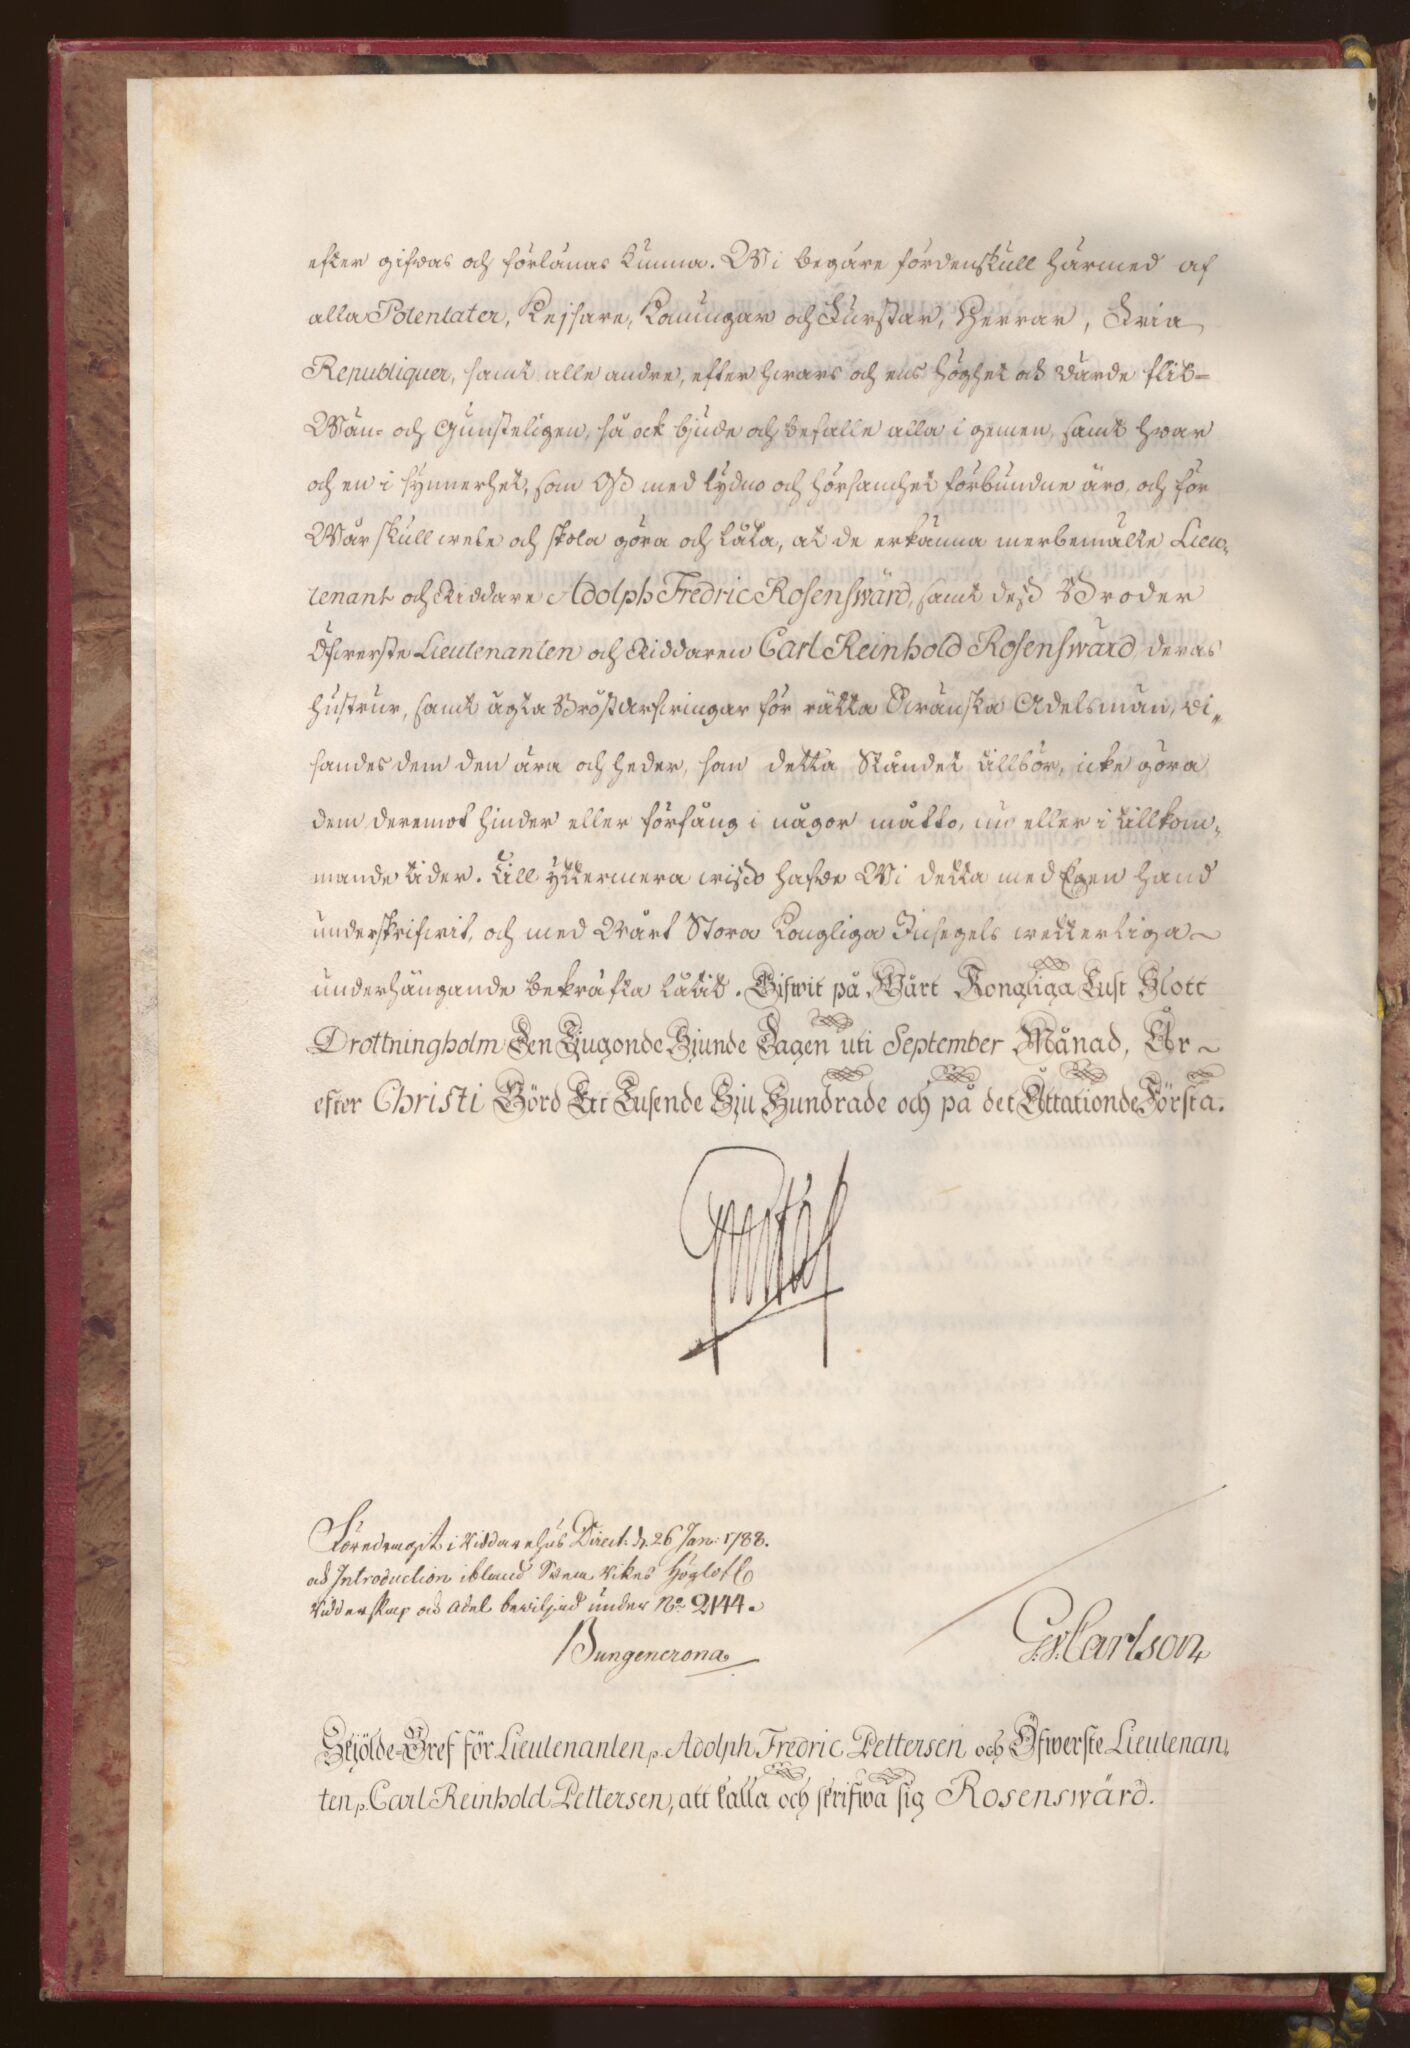 efter gifvas och förlänas kunna. Wi begäre fördenskull härmed af
alla Potentater, Kejsare, Konungar och Furstar, Herrar, Fria
Republiquer, samt alle andre, efter hvars och ens höghet och värde flit=
Wän- och Gunsteligen, så ock bjude och befalle alla i gemen, samt hvar
och en i synnerhet, som Oss med lydno och hörsamhet förbundne äro, och för
Wår skull wele och skola göra och låta, at de erkänna merbemälte Lieu„
tenant och Riddare Adolph Fredric Rosenswärd, samt dess Broder
Öfverste Lieutenanten och Riddaren Carl Reinhold Rosenswärd, deras
hustrur, samt ägta Bröstarfvingar för rätta Svänska Adelsmän, vi„
sandes dem den ära och heder, som detta Ståndet tillhör, icke göra
dem deremot hinder eller förfång i någor måtto, nu eller i tillkom„
mande tider. Till yttermera wisso hafve Wi detta med Egen hand
underskrifwit, och med Wårt Stora Kongliga Insegels wetterliga
underhängande bekräfta låtit. Gifwit på Wårt Kongliga Lust Slott
Drottningholm Den Tjugonde Sjunde Dagen uti September Månad, År
efter Christi Börd Ett Tusende Sju Hundrade och på det Åttationde Första.
Gustaf
Föredragit i Riddarehus Direct: d. 26 Jan: 1788.
och Introduction ibland Svea Rikes Höglofl
Ridderskap och Adel beviljad under No 2144.
Bungencrona.
G. v. Carlson
Skjölde-Bref för Lieutenanten p. Adolph Fredric Pettersen och Öfwerste Lieutenan„
ten p. Carl Reinhold Pettersen, att kalla och skrifwa sig Rosenswärd.